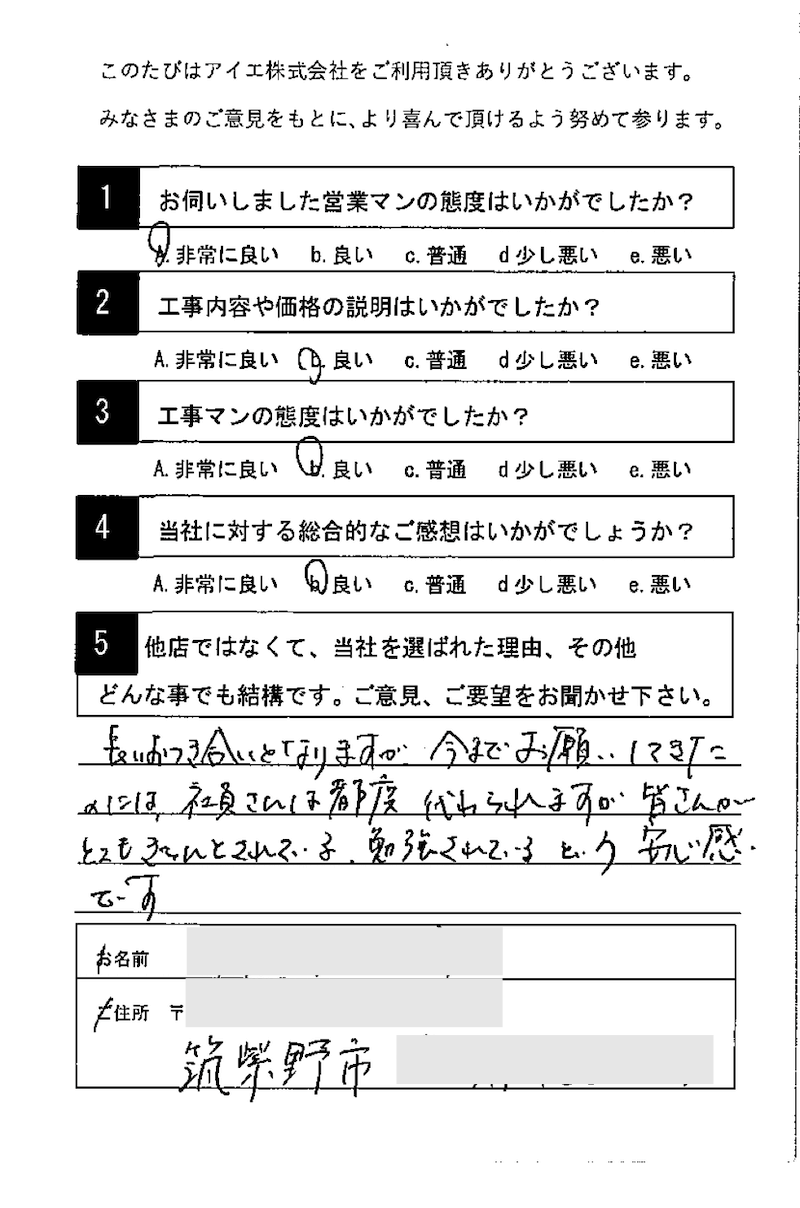 このたびはアイエ株式会社をご利用頂きありがとうございます。
みなさまのご意見をもとに、より喜んで頂けるよう努めて参ります。
1 お伺いしました営業マンの態度はいかがでしたか？
A. 非常に良い b. 良い c. 普通 d 少し悪い e. 悪い
2 工事内容や価格の説明はいかがでしたか？
A. 非常に良い b. 良い c. 普通 d 少し悪い e. 悪い
3 工事マンの態度はいかがでしたか？
A. 非常に良い b. 良い c. 普通 d 少し悪い e. 悪い
4 当社に対する総合的なご感想はいかがでしょうか？
A. 非常に良い b. 良い c. 普通 d 少し悪い e. 悪い
5 他店ではなくて、当社を選ばれた理由、その他
どんな事でも結構です。ご意見、ご要望をお聞かせ下さい。
長いおつき合いとなりますが 今までお願いしてきた
には、社員さんは都度 代わられますが 皆さんが
とてもきちんとされている、勉強されている という 安心感
です
お名前
ご住所 〒
筑紫野市